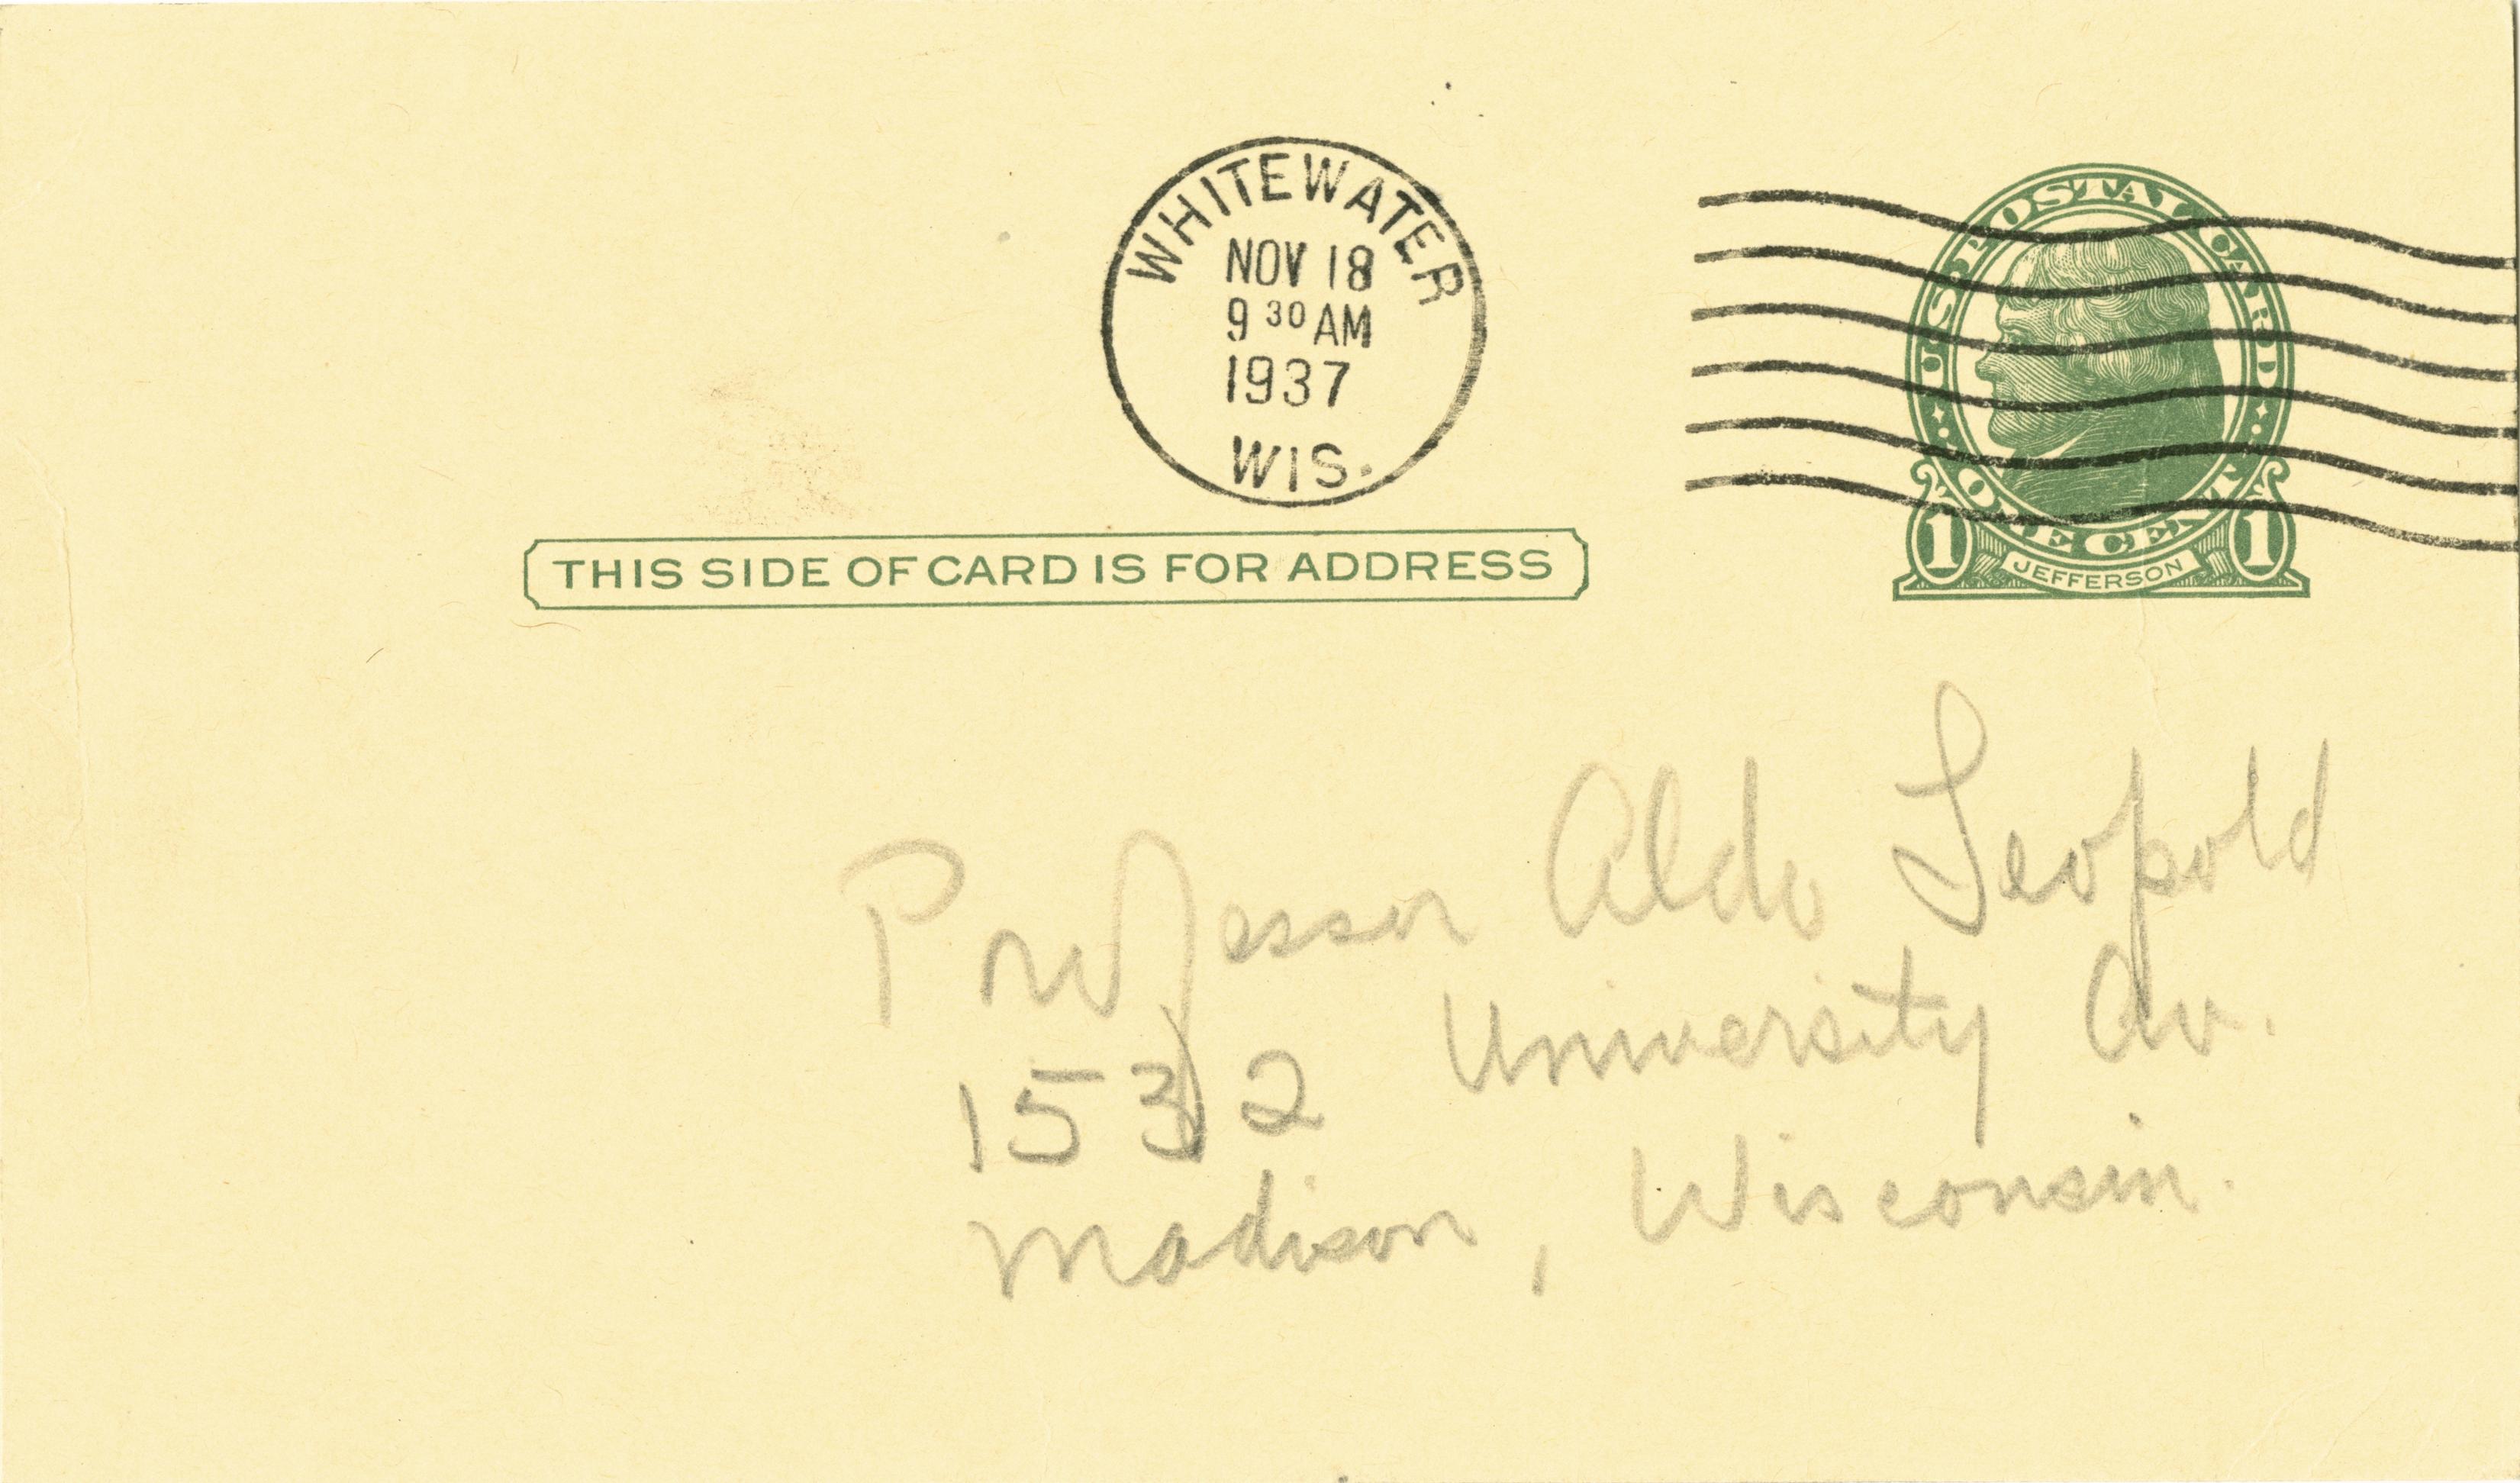 WHITEWATER
NOV 18
9 30 AM
1937
WIS.
U.S. POSTAL CARD
ONE CENT
1 JEFFERSON 1
THIS SIDE OF CARD IS FOR ADDRESS
Professor Aldo Leopold
1532 University Av.
Madison, Wisconsin.